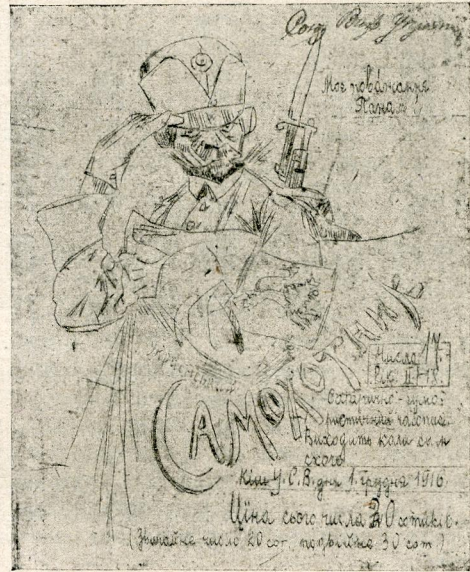 Союз
Моє поважання
Панам!
САМОХОТНИК
Число 17.
Рік II
Сатирично-гумо-
Виходить коли сам
схоче
Кіш У.С.В. дня 1. грудня 1916.
Ціна сього числа сотиків.
(Звичайне число 20 сот., подвійне 30 сот.)